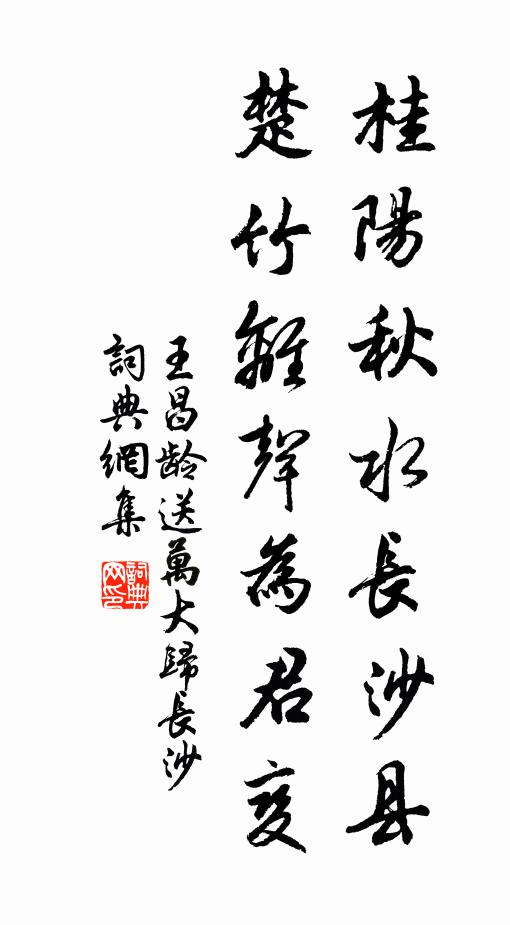 桂陽秋水長沙县
楚竹離聲為君变
王昌龄送萬大歸長沙
詞典網集
詞典网印